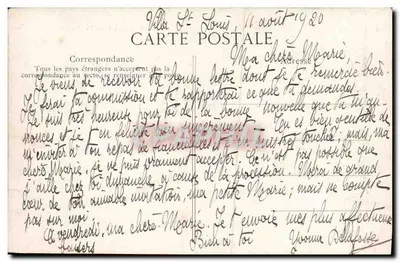 Villa St Louis, 11 août 1920
CARTE POSTALE
Ma chère Marie,
Correspondance
Adresse
Tous les pays étrangers n'acceptent pas la
correspondance au recto, se renseigner
Je viens de recevoir ta bonne lettre dont je te remercie bien.
Je ferai ta commission et te rapporterai ce que tu demandes.
Je suis très heureuse pour toi de la bonne nouvelle que tu m'an-
nonces et je t'en félicite sincèrement. Tu es bien aimable de
m'inviter à ton repas de fiançailles et touchée, mais, ma
chère Marie, je ne puis vraiment accepter. Ce n'est pas possible que
j'aille chez toi dimanche à cause de la procession. Merci de grand
cœur de ton aimable invitation, ma petite Marie; mais ne compte
pas sur moi.
A vendredi, ma chère Marie. Je t'envoie mes plus affectueux
baisers
Bien à toi
Yvonne Delafosse